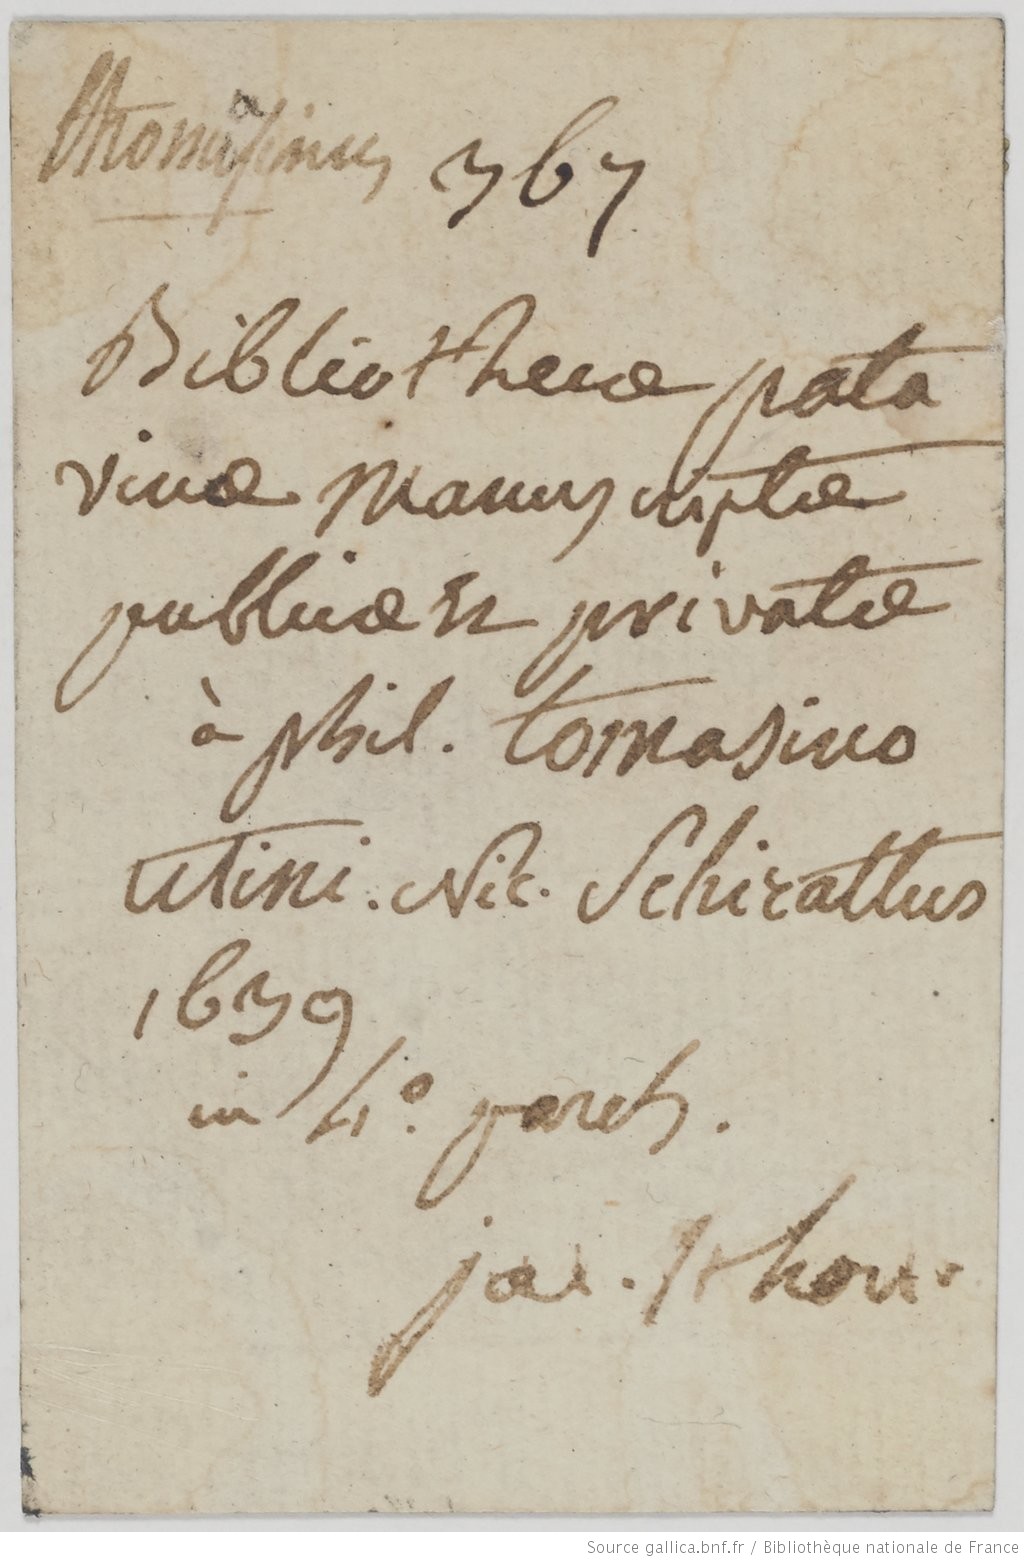 thomasinus 367
Bibliothecæ pata
vinæ Manuscriptæ
publicæ et privatæ
à phil. tomasino
utini. Nic. Schirattus
1639
in 4º. parch.
jac. st honor
Source gallica.bnf.fr / Bibliothèque nationale de France